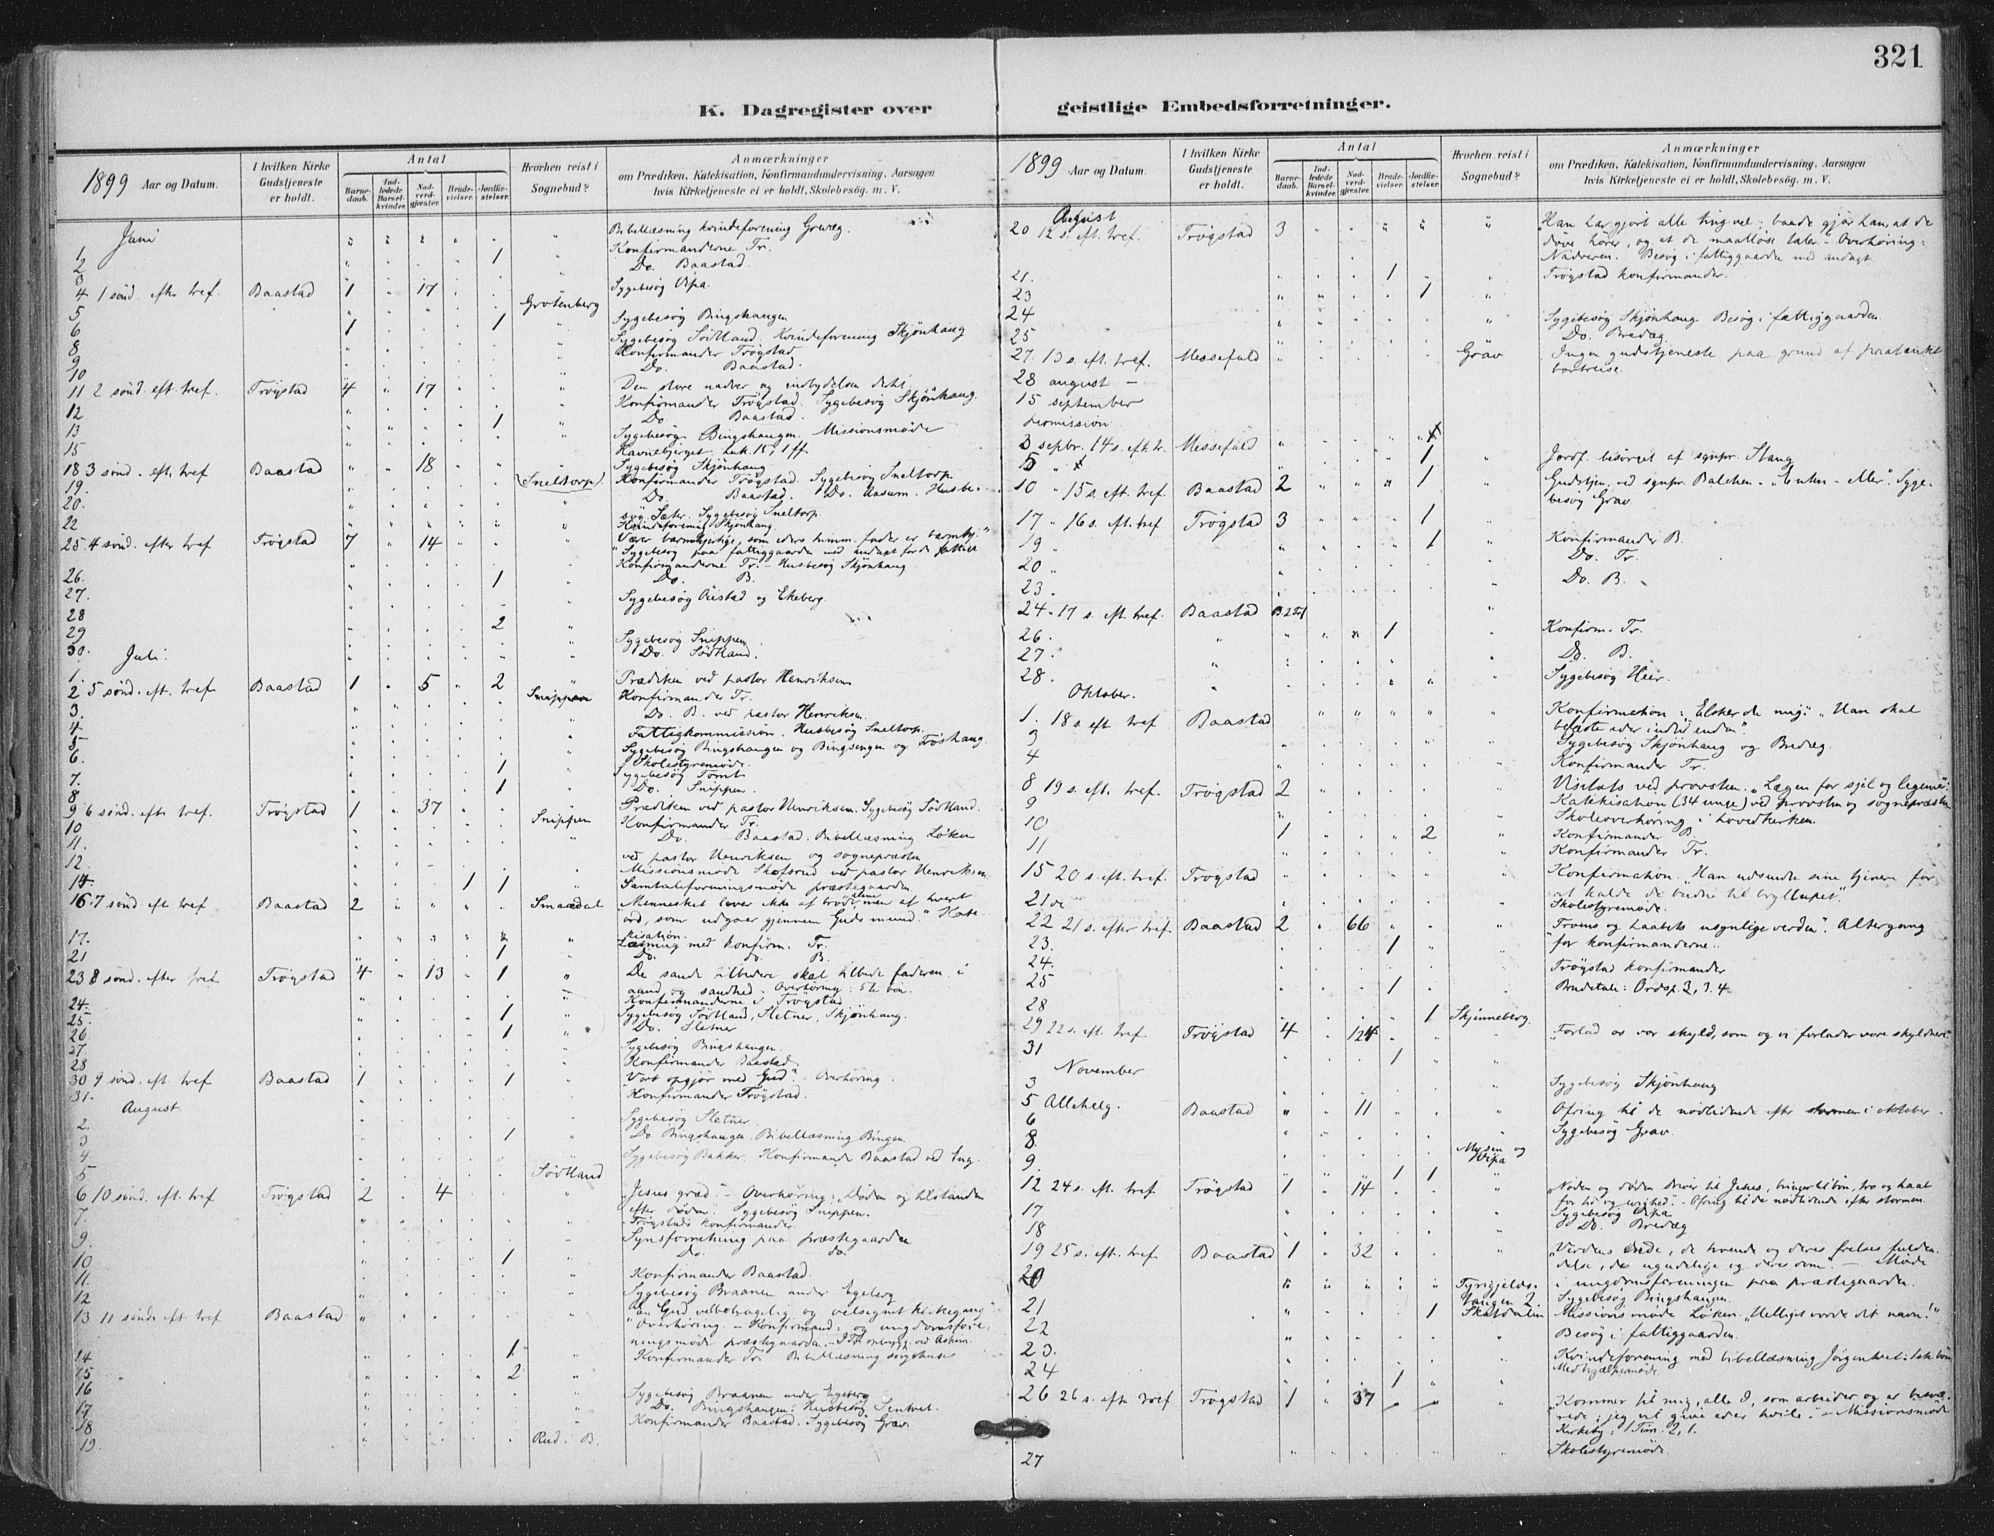 321
K. Dagregister over geistlige Embedsforretninger.
1899 Aar og Datum.
I hvilken Kirke Gudstjeneste er holdt.
Antal
Barnedaab.
Indledede Barselkvinder.
Nadverdgjæster.
Brudevielser.
Jordfæstelser.
Hvorhen reist i Sognebud?
Anmærkninger
om Prædiken, Katekisation, Konfirmandundervisning, Aarsagen
hvis Kirketjeneste ei er holdt, Skolebesøg. m. V.
Juni
Bibellæsning kvindeforening
1 Konfirmanderne Tr.
2 Do. Baastad.
3
4 1 sönd. efter tref. Baastad 1 17 Sygebesøg
5 Grötenberg
6 Sygebesøg Bingshaugen
8 Sygebesøg Södtland. Kvindeforening Skjönhaug
9 Konfirmander Trögstad
10 Do. Baastad.
11 2 sönd. eft. tref. Trögstad 4 17 Den store nadver og indbydelsen dertil
12 Konfirmander Trögstad. Sygebesøg Skjönhaug.
13 Do. Baastad.
15 Sygebesøg Bingshaugen. Missionsmøde
Havnebjerget. Luk. 15, 1 ff.
18 3 sönd. efter tref Baastad 18 Sygebesøg Skjönhaug
19. Sneltorp Konfirmander Trögstad. Sygebesøg Sneltorp.
20. Do. Baastad. Do. Husbe-
22 søg Sæter. Sygebesøg Sneltorp.
Kvindeforening Skjönhaug
25. 4 sönd. efter tref Trögstad 7 14 Være barmhjertige, som eders himm. fader er barmhj."
Sygebesøg paa fattiggaarden med andagt for de fattige
26. Konfirmanderne Tr. - Husbesøg Skjönhaug
27. Do. B.
28 Sygebesøg og Ekeberg.
29 2
30. Sygebesøg Snippen.
Juli.
1. Do. Södtland.
2 5 sönd. eft. tref. Baastad 1 5 2 Prædiken ved pastor Henriksen
3. Snippen Konfirmander Tr.
4. Do. B. ved pastor Henriksen.
5 Fattigkommission. Husbesøg Sneltorp.
6. Sygebesøg Bingshaugen og Bingsengen og
7. Skolestyremøde.
8 Sygebesøg Tomt
Do. Snippen.
9 6 sönd. efter tref. Trögstad 1 37 Prædiken ved pastor Henriksen. Sygebesøg Södtland.
10 Snippen Konfirmander Tr.
11. Do. Baastad. Bibellæsning Löken
12. ved pastor Henriksen og sognepræsten
Missionsmøde ved pastor Henriksen.
14. 1 1 Samtaleforeningsmøde præstegaarden
16. 7 sönd eft. tref Baastad 2 Smaadal Mennesket lever ikke af brød alene, men af hvert
ord, som udgaar gjennem Guds mund." Kate-
kisation.
17. Læsning med konfirm. Tr.
21 Do. do. B.
23 8 sönd. efter tref. Trögstad 4 13 1 De sande tilbedere skal tilbede faderen i
aand og sandhed. Overhøring: 5te bøn.
24. Konfirmanderne i Trögstad
25. 1 Sygebesøg Södtland, Sletner, Skjönhaug.
26. 1 Do. Sletner
27. Sygebesøg Bingshaugen.
28 Konfirmander Baastad.
30 9 sönd. eft. tref Baastad 1 1 Vort opgjør med Gud". Overhøring.
31. Konfirmander Trögstad.
August.
2. Sygebesøg Sletner
3 1 Do. Bingshaugen. Bibellæsning Bingen.
4 Sygebesøg Bakker. Konfirmande Baastad ved
5 Södtland
6 10 sönd. eft. tref Trögstad 2 4 "Jesus græd". - Overhøring: Döden og tilstanden
efter døden". Sygebesøg Snippen.
7. Trögstads konfirmander.
9. Synsforretning paa præstegaarden
10 1 Do. do.
11. Konfirmander Baastad.
12 Sygebesøg Braanen under Egeberg
13 11 sönd. eft tref. Baastad "En Gud velbehagelig og velsignet kirkegang"
Overhøring. - Konfirmand: og ungdomsfore-
ningsmøde præstegaarden.
14 1 Konfirmander Tr. Bibellæsning
15 2
16 Sygebesøg Braanen under Egeberg
17. Do. Bingshaugen: Husbesøg
18 Konfirmander Baastad. Sygebesøg Grav
19. Rud i B.
1899 Aar og Datum.
I hvilken Kirke Gudstjeneste er holdt.
Antal
Barnedaab.
Indledede Barselkvinder.
Nadverdgjæster.
Brudevielser.
Jordfæstelser.
Hvorhen reist i Sognebud?
Anmærkninger
om Prædiken, Katekisation, Konfirmandundervisning, Aarsagen
hvis Kirketjeneste ei er holdt, Skolebesøg. m. V.
August
20 12 s. eft. tref. Trögstad 3 Han har gjort alle ting vel; baade gjør han, at de
døve hører, og at de maalløse taler." Overhøring:
Nadveren. Besøg i fattiggaarden med andagt.
21. 1 Trögstad konfirmander.
23 1
24 Sygebesøg Skjönhaug. Besøg i fattiggaarden.
25 Do. Bredæg.
27. 13 s. eft. tref. Messefald Grav Ingen gudstjeneste paa grund af præstens
bortreise.
28 august -
15 september
permission.
3 septbr. 14 s. eft. tr. Messefald
5 1 Jordf. besørget af sgnpr. Stang
10 15 s. eft. tref. Baastad 2 1 Gudstj. ved sgnpr. Balchen. - "Enten - Eller". Syge-
besøg Grav
17 16 s. eft. tref Trögstad 3 1
19 1 Konfirmander B.
20 Do. Tr.
23. Do. B.
24. 17 s. eft. tref Baastad
26. 1 Konfirm. Tr.
27. Do. B.
28. Sygebesøg Heier.
Oktober.
1. 18 s. eft tref Baastad Konfirmation: Elsker du mig?" "Han skal
befæste eder indtil enden"
3 Sygebesøg Skjönhaug og Bredæg.
4 Konfirmander Tr.
8 19 s. eft. tref. Trögstad 2 Visitats ved provsten. "Lægen for sjel og legeme".
9 Katekisation (34 unge) ved provsten og sognepræsten
10 Skoleoverhøring i hovedkirken.
1 2 Konfirmander B.
11 Konfirmander Tr.
15 20 s. eft. tref. Trögstad Konfirmation. "Han udsendte sine tjenere for
at kalde de budne til bryllupet".
21de Skolestyremøde.
22 21 s. efter tref. Baastad 2 66 "Troens og haabets usynlige verden". Altergang
23. 1 for konfirmanderne.
24. Trögstad konfirmander
25 1 Brudetale: Ordsp. 3, 3. 4
28 1 Skjenneberg.
29 22 s. eft. tref Trögstad 4 124 "Forlad os vor skyld, som og vi forlader vore skyldnere."
31 1
November
3 Sygebesøg Skjönhaug
5 Allehelg. Baastad 11 Ofring til de nødlidende efter stormen i oktober.
6 Sygebesøg Grav.
8. Mysen og
9. 1 1
12 24 s. eft. tref. Trögstad 1 14 "Nøden og døden driver til Jesus, bringer til bøn, tro og haab
for tid og evighed". - Ofring til de nødlidende efter stormen.
17 Sygebesøg
18 Do. Bredæg
19 25 s. eft. tref. Baastad 1 32 "Verdens ende, de troende og deres frelses fulden-
delse, de ugudelige og deres dom." - Møde
20 i ungdomsforeningen paa præstegaarden.
Sygebesøg Bingshaugen.
21 1 Skatdalen Missionsmøde Löken. "Helliget vorde dit navn!"
22 Besøg i fattiggaarden.
23. Kvindeforening med bibellæsning
24 1
26 26 s. eft tref Trögstad 1 37 "Kommer til mig, alle I, som arbeider og er besvæ-
rede; jeg vil give eder hvile." - Missionsmøde
Kirkeby, 1 Tim. 2, 1.
27 Skolestyremøde.